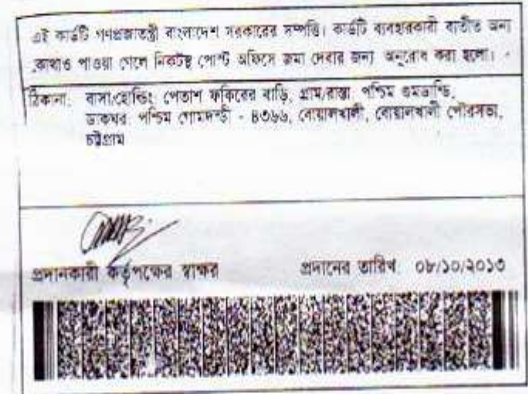 এই কার্ডটি গণপ্রজাতন্ত্রী বাংলাদেশ সরকারের সম্পত্তি। কার্ডটি ব্যবহারকারী ব্যতীত অন্য
কোথাও পাওয়া গেলে নিকটস্থ পোস্ট অফিসে জমা দেবার জন্য অনুরোধ করা হলো।
ঠিকানা: বাসা/হোল্ডিং: পেতাশ ফকিরের বাড়ি, গ্রাম/রাস্তা: পশ্চিম
ডাকঘর: পশ্চিম গোমদন্ডী - ৪৩৬৬, বোয়ালখালী, বোয়ালখালী পৌরসভা,
চট্টগ্রাম
প্রদানকারী কর্তৃপক্ষের স্বাক্ষর প্রদানের তারিখ: ০৮/১০/২০১৩